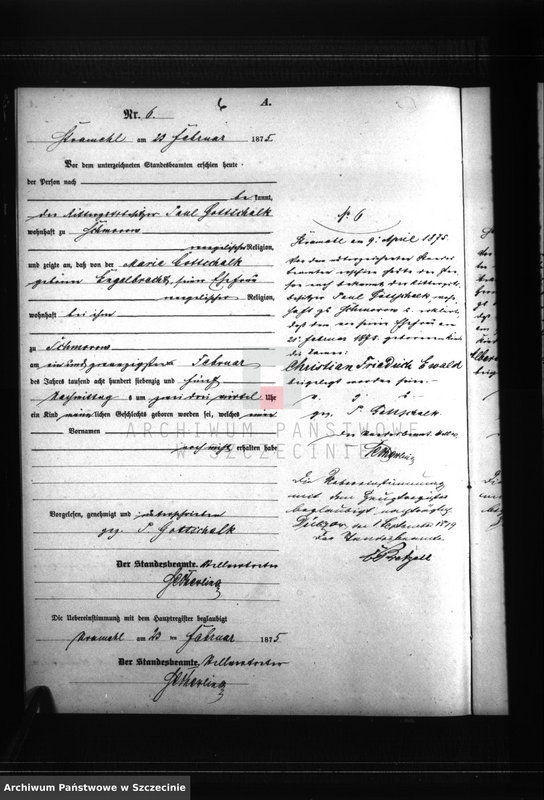 6
A.
Nr. 6.
Stramehl am 23 Februar 1875.
Vor dem unterzeichneten Standesbeamten erschien heute
der Person nach
be kannt,
der Rittergutsbesitzer Paul Gottschalk
wohnhaft zu Schmorow
evangelischer Religion,
und zeigte an, daß von der Maria Gottschalk
geborene Engelbrecht, seine Ehefrau
evangelischer Religion,
wohnhaft bei ihm
zu Schmorow
am ein und zwanzigsten Februar
des Jahres tausend acht hundert siebenzig und fünf
Nachmittag s um zwei drei viertel Uhr
ein Kind männlichen Geschlechts geboren worden sei, welches
Vornamen
noch nicht erhalten habe
Vorgelesen, genehmigt und unterschrieben
gez. P. Gottschalk
Der Standesbeamte. Stellvertreter
Die Uebereinstimmung mit dem Hauptregister beglaubigt
Stramehl am 23 ten Februar 1875
Der Standesbeamte. Stellvertreter
No 6
Stramehl am 9. April 1875.
Vor dem unterzeichneten Standes
beamten erschien heute der Per
son nach bekannt der Ritterguts
besitzer Paul Gottschalk wohn
haft zu Schmorow u. erklärt,
daß dem von seiner Ehefrau am
21. Februar 1875 geborenen Kinde
die Namen:
Christian Friedrich Ewald
beigelegt worden seien.
v. g. u.
gez. P. Gottschalk
Der Standesbeamte. Stellv.
Die Uebereinstimmung
mit dem Hauptregister
beglaubigt nachträglich
den 1 September 1879
Der Standesbeamte.
ARCHIWUM PAŃSTWOWE
W SZCZECINIE
Archiwum Państwowe w Szczecinie